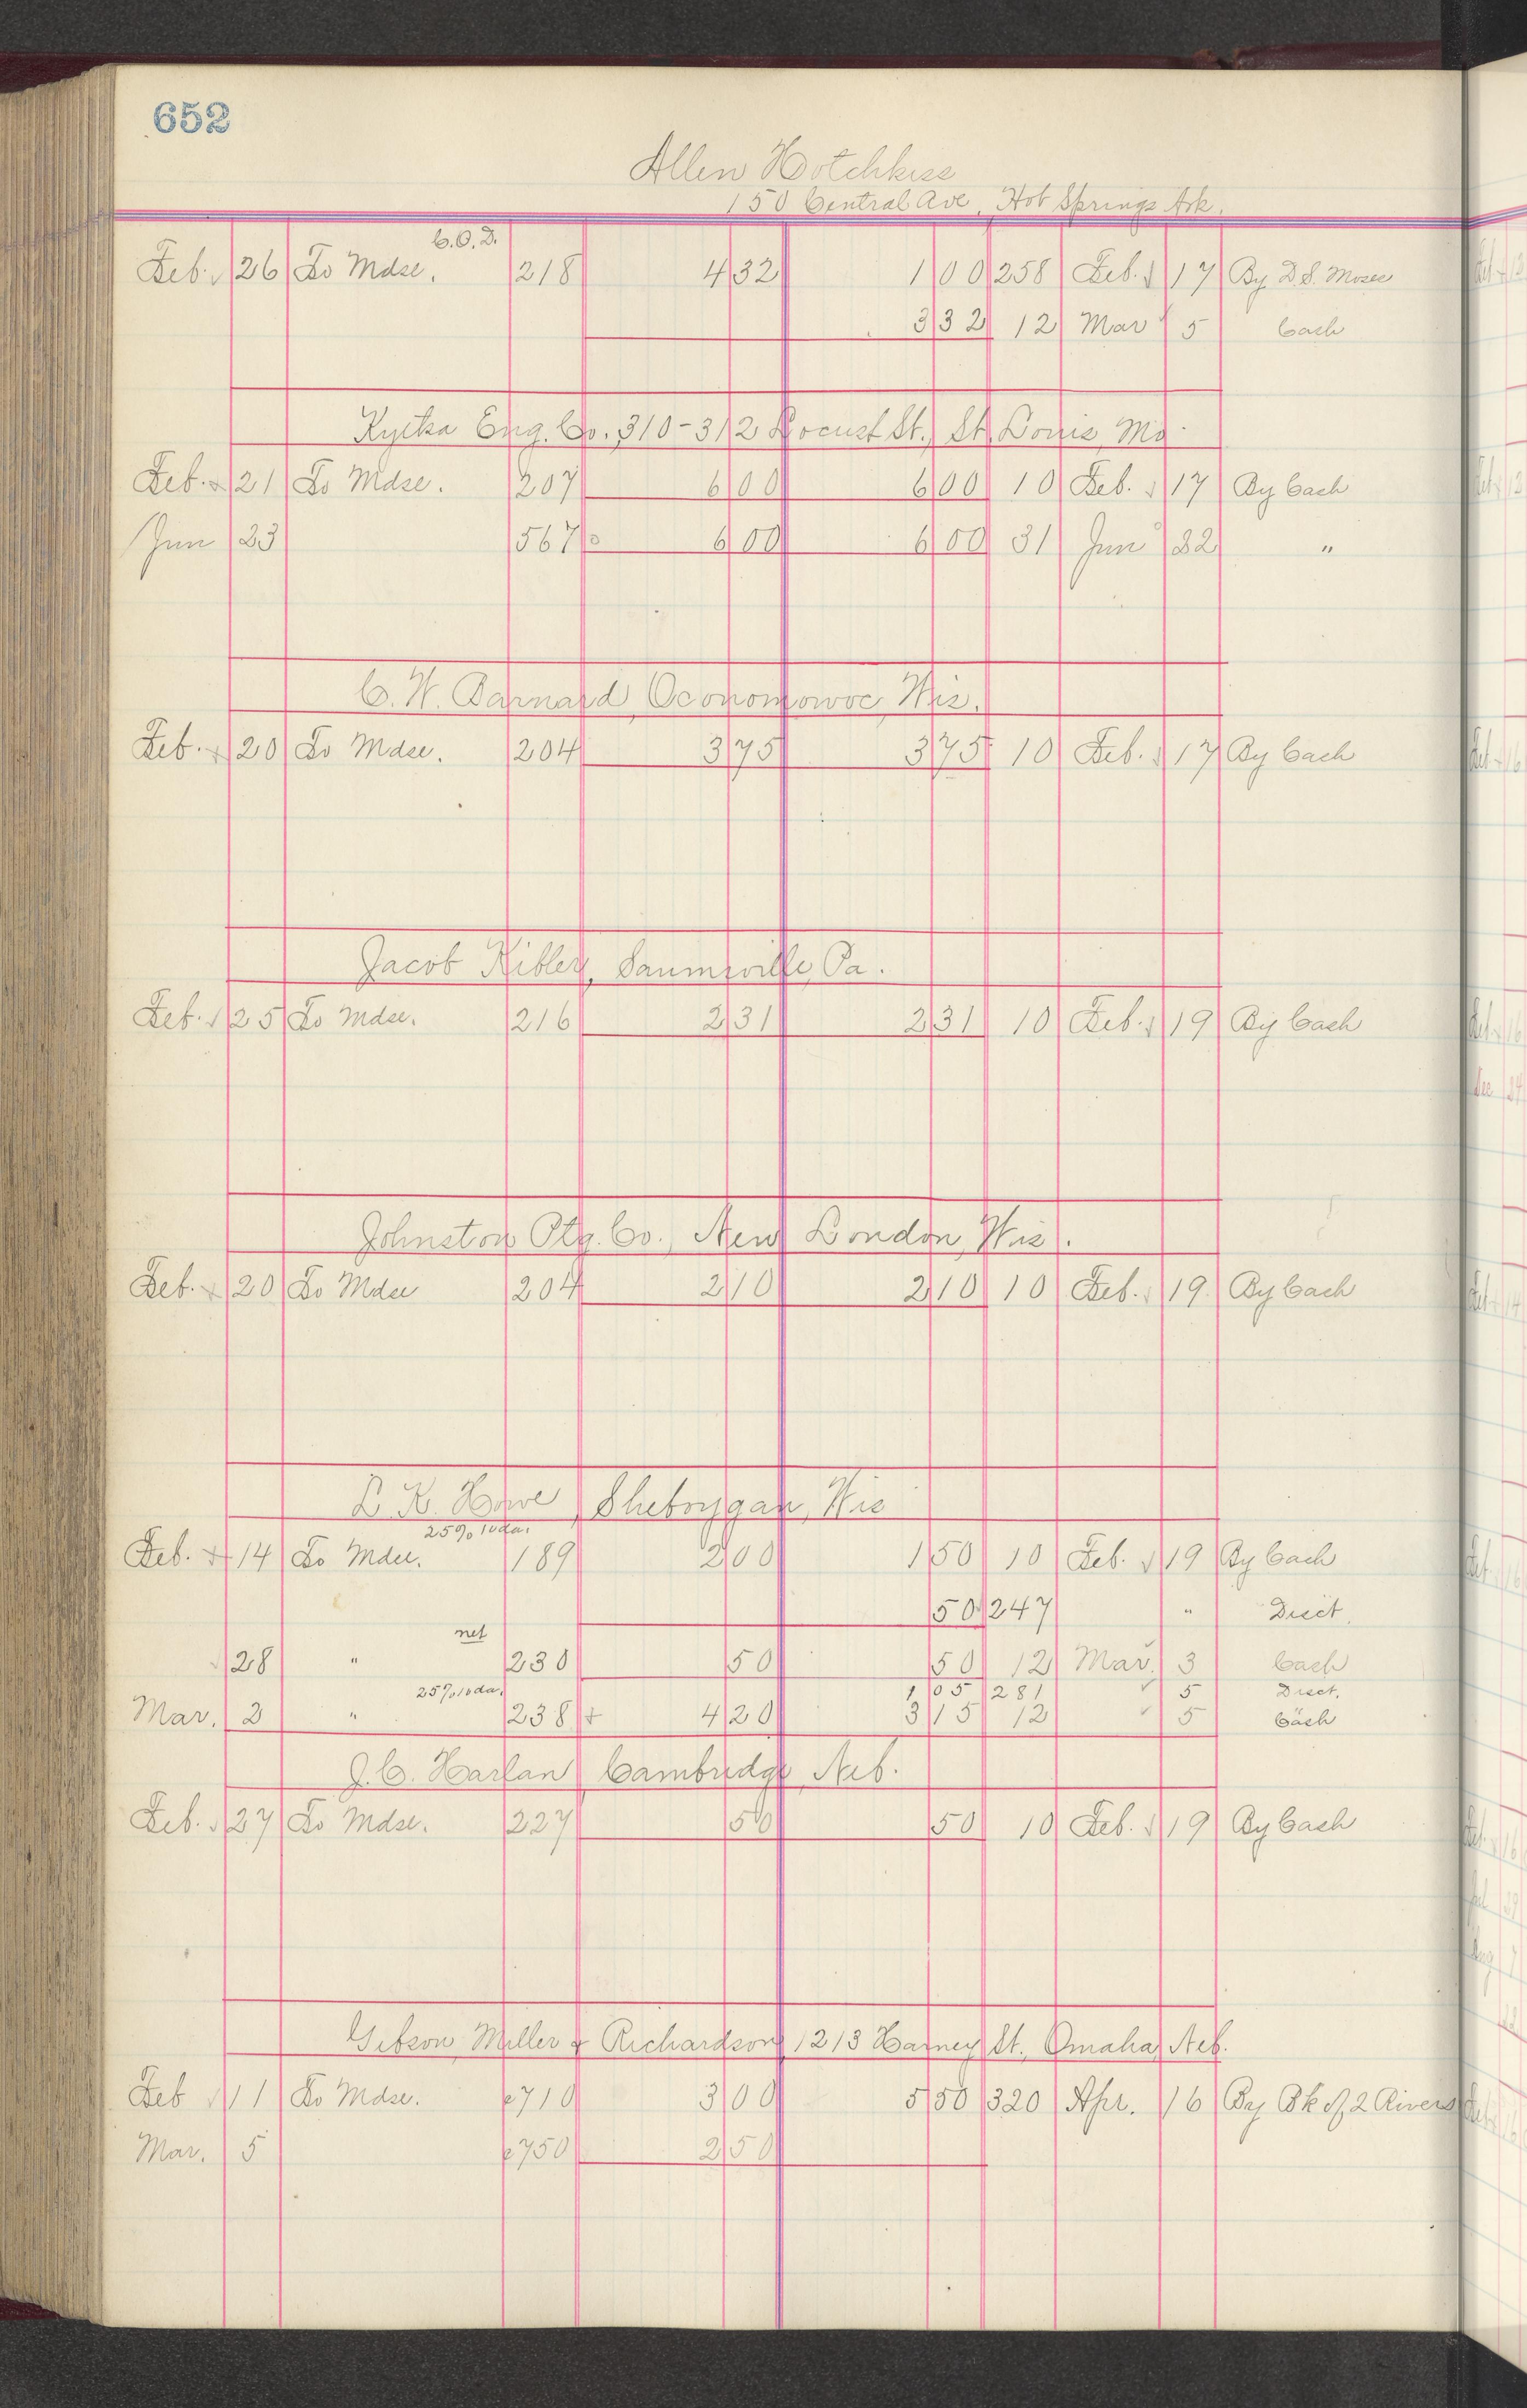 652
Allen Hotchkiss
150 Central Ave, Hot Springs Ark.
C.O.D.
Feb. 26 To Mdse. 218 4 32 1 00 258 Feb. 17 By D.S. Moses
3 32 12 Mar 5 Cash
Kytka Eng. Co., 310-312 Locust St., St. Louis, Mo.
Feb. 21 To Mdse. 207 6 00 6 00 10 Feb. 17 By Cash
Jun 23 567 6 00 6 00 31 Jun 22 "
C. W. Barnard, Oconomowoc, Wis.
Feb. 20 To Mdse. 204 3 75 3 75 10 Feb. 17 By Cash
Jacob Kibler, Saumsville, Pa.
Feb. 25 To Mdse. 216 2 31 2 31 10 Feb. 19 By Cash
Johnston Ptg. Co., New London, Wis.
Feb. 20 To Mdse 204 2 10 2 10 10 Feb. 19 By Cash
L. K. Howe, Sheboygan, Wis
25% 10 da.
Feb. 14 To Mdse. 189 2 00 1 50 10 Feb. 19 By Cash
50 247 " Disct.
net
28 " 230 50 50 12 Mar. 3 Cash
25% 10 da. 1 05 281 5 Disct.
Mar. 2 " 238 4 20 3 15 12 5 Cash
J. C. Harlan, Cambridge, Neb.
Feb. 27 To Mdse. 227 50 50 10 Feb. 19 By Cash
Gibson, Miller & Richardson, 1213 Harney St., Omaha, Neb.
Feb 11 To Mdse. e710 3 00 5 50 320 Apr. 16 By Bk of 2 Rivers
Mar. 5 e750 2 50